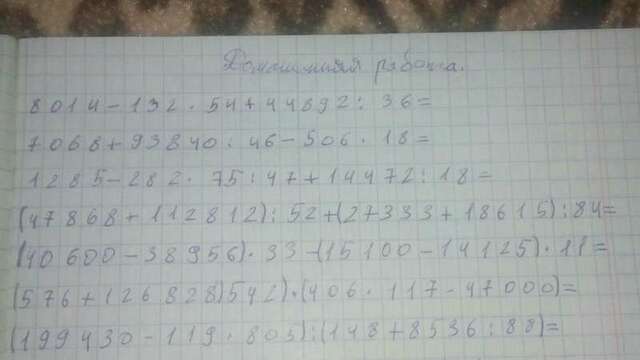 Домашняя работа.
8014-132·54+44892:36=
7068+93840:46-506·18=
1285-282·75:47+14472:18=
(47868+112812):52+(27333+18615):84=
(40600-38956)·33-(15100-14125)·11=
(576+126828)542)·(406·117-47000)=
(199430-119·805):(148+8536:88)=